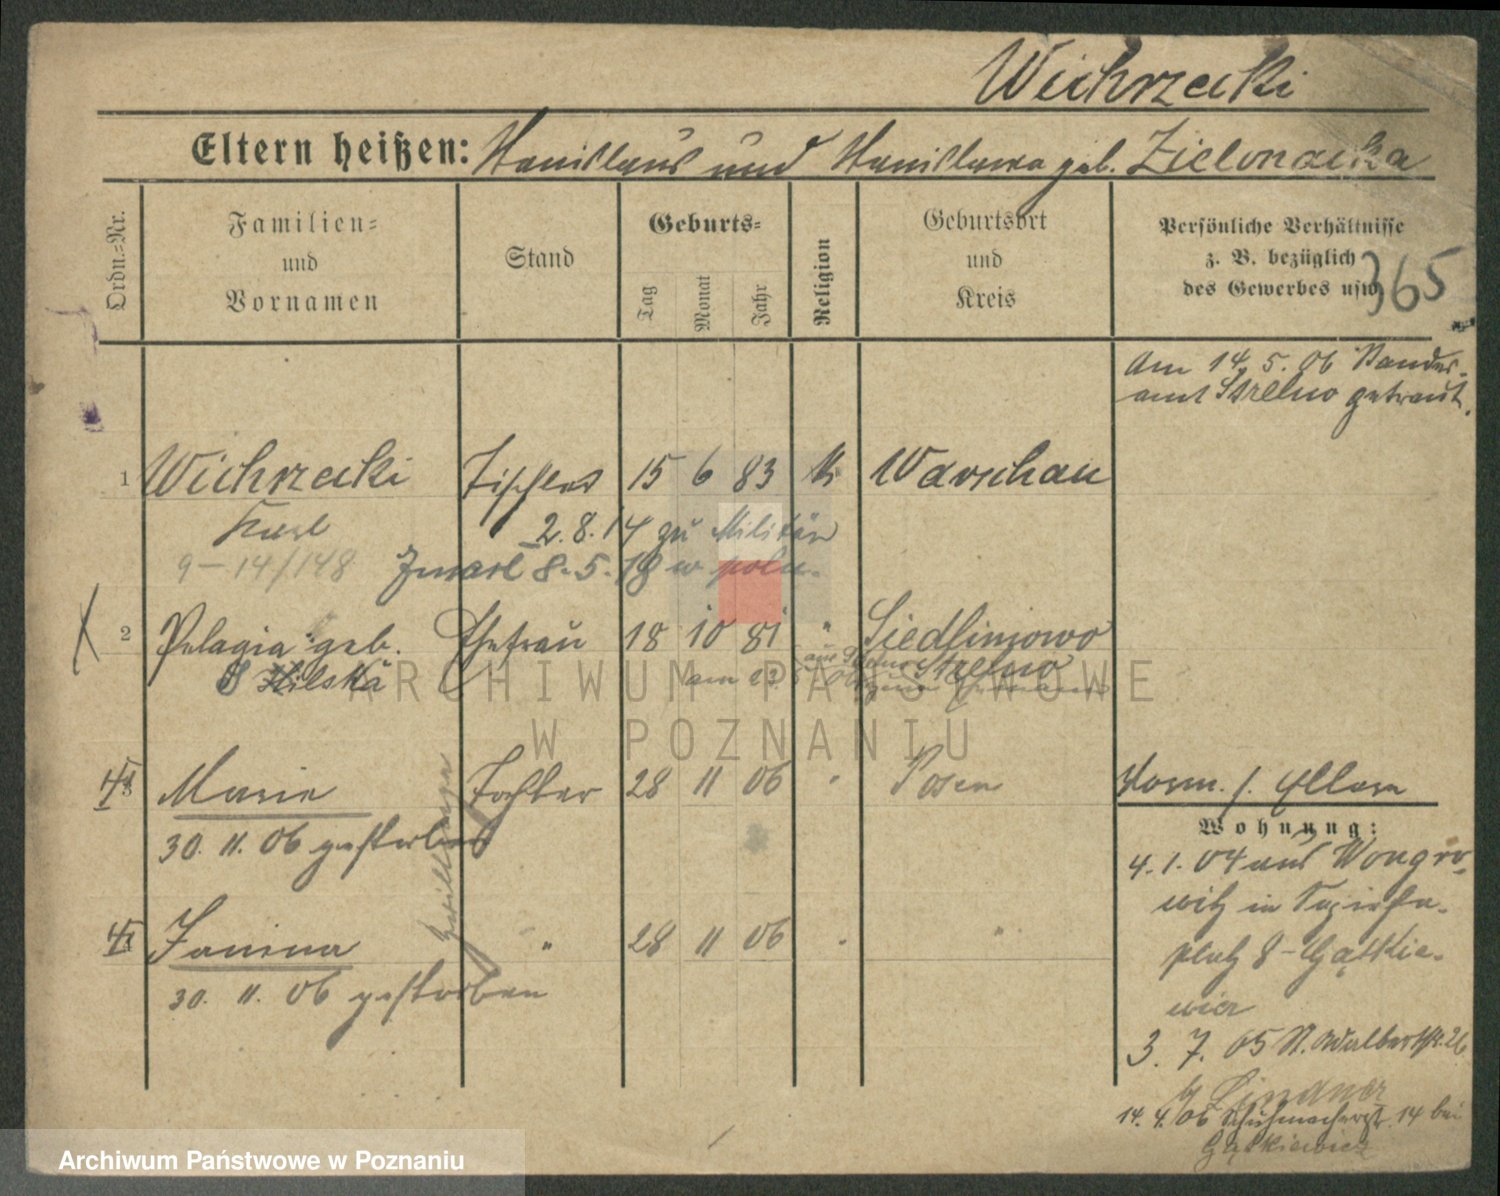 Wichrzecki
Eltern heißen: Stanislaus und Stanislawa geb. Zielonacka
Ordn.-Nr.
Familien-
und
Vornamen
Stand
Geburts-
Tag
Monat
Jahr
Religion
Geburtsort
und
Kreis
Persönliche Verhältnisse
z. B. bezüglich
des Gewerbes usw.
365
Am 14. 5. 06 Standes-
amt Strelno getraut.
1 Wichrzecki Tischler 15 6 83 k Warschau
Karl 2. 8. 14 zu Militär
9-14/148 Zmarł 8. 5. 18 w
X
2 Pelagia geb. Ehefrau 18 10 81 " Siedlimowo
Strelno
am 23.
Marie Tochter 28 11 06 " Posen
30. 11. 06 gestorben
Zwillinge
Janina " 28 11 06 " "
30. 11. 06 gestorben
Vorm. s. Eltern
Wohnung:
4. 1. 04 aus Wongro-
witz in Sapieha-
platz 8 - Gątkie-
wicz
3. 7. 05 St. Adalbertstr. 26
b/ Lindner
14. 4. 06 Schuhmacherstr. 14 bei
Gątkiewicz
ARCHIWUM PAŃSTWOWE
W POZNANIU
Archiwum Państwowe w Poznaniu